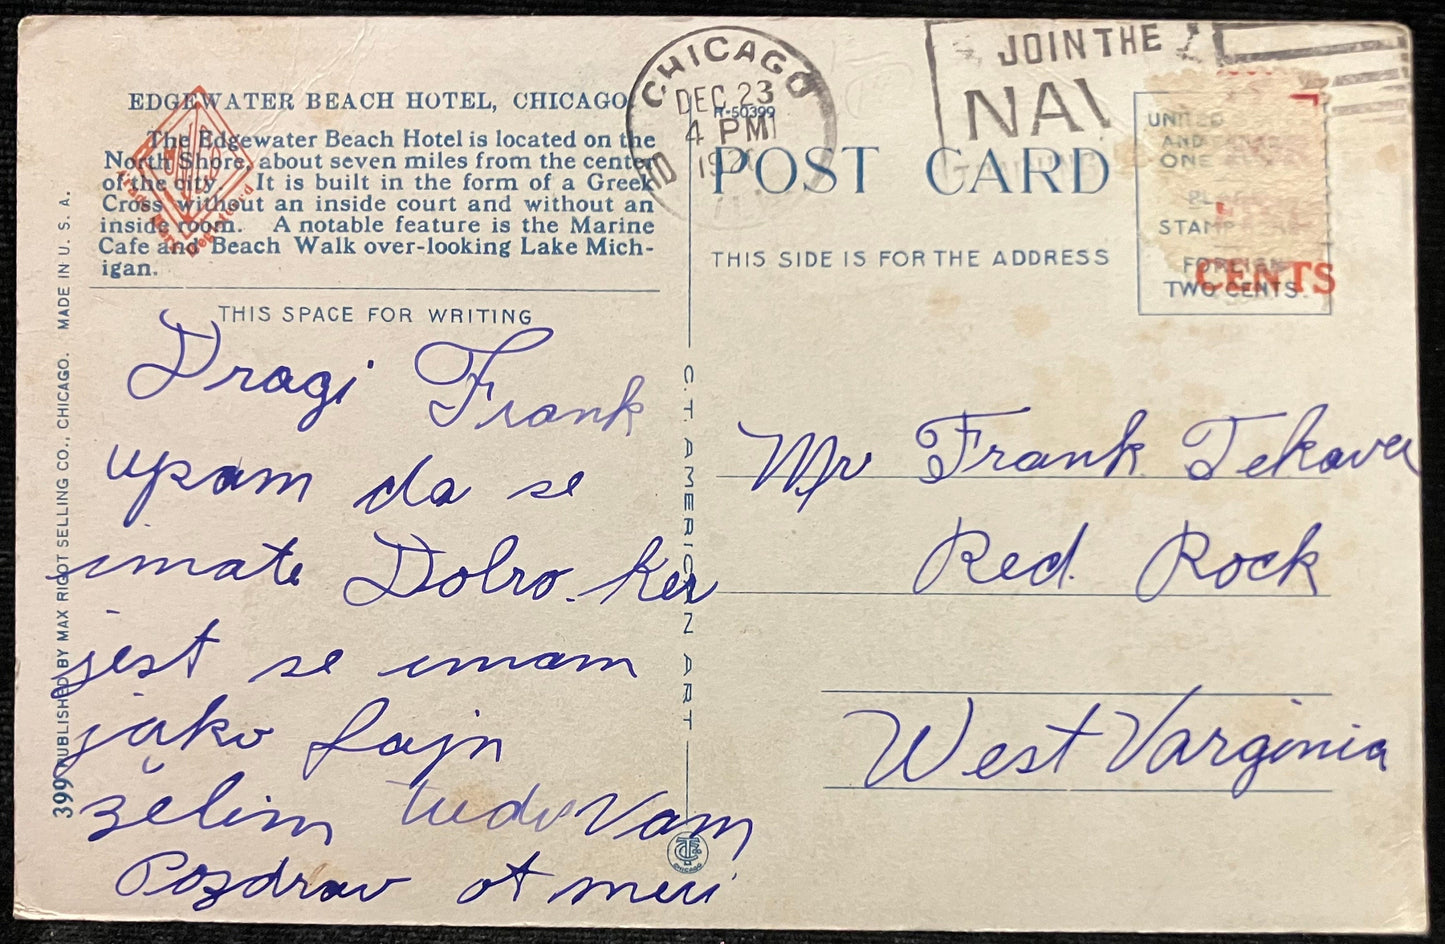 EDGEWATER BEACH HOTEL, CHICAGO
The Edgewater Beach Hotel is located on the
North Shore, about seven miles from the center
of the city. It is built in the form of a Greek
Cross without an inside court and without an
inside room. A notable feature is the Marine
Cafe and Beach Walk over-looking Lake Mich-
igan.
THIS SPACE FOR WRITING
Dragi Frank
upam da se
imate Dobro. ker
jest se imam
jako fajn
želim tudi Vam
Pozdrav ot meri
399 PUBLISHED BY MAX RIGOT SELLING CO., CHICAGO. MADE IN U. S. A.
C. T. AMERICAN ART
CHICAGO
CHICAGO
DEC 23
4 PM
R-50399
JOIN THE
POST CARD
THIS SIDE IS FOR THE ADDRESS
UNITED
AND
ONE
STAMP
FOREIGN
TWO CENTS.
CENTS
Mr Frank Tekavec
Red Rock
West Varginia